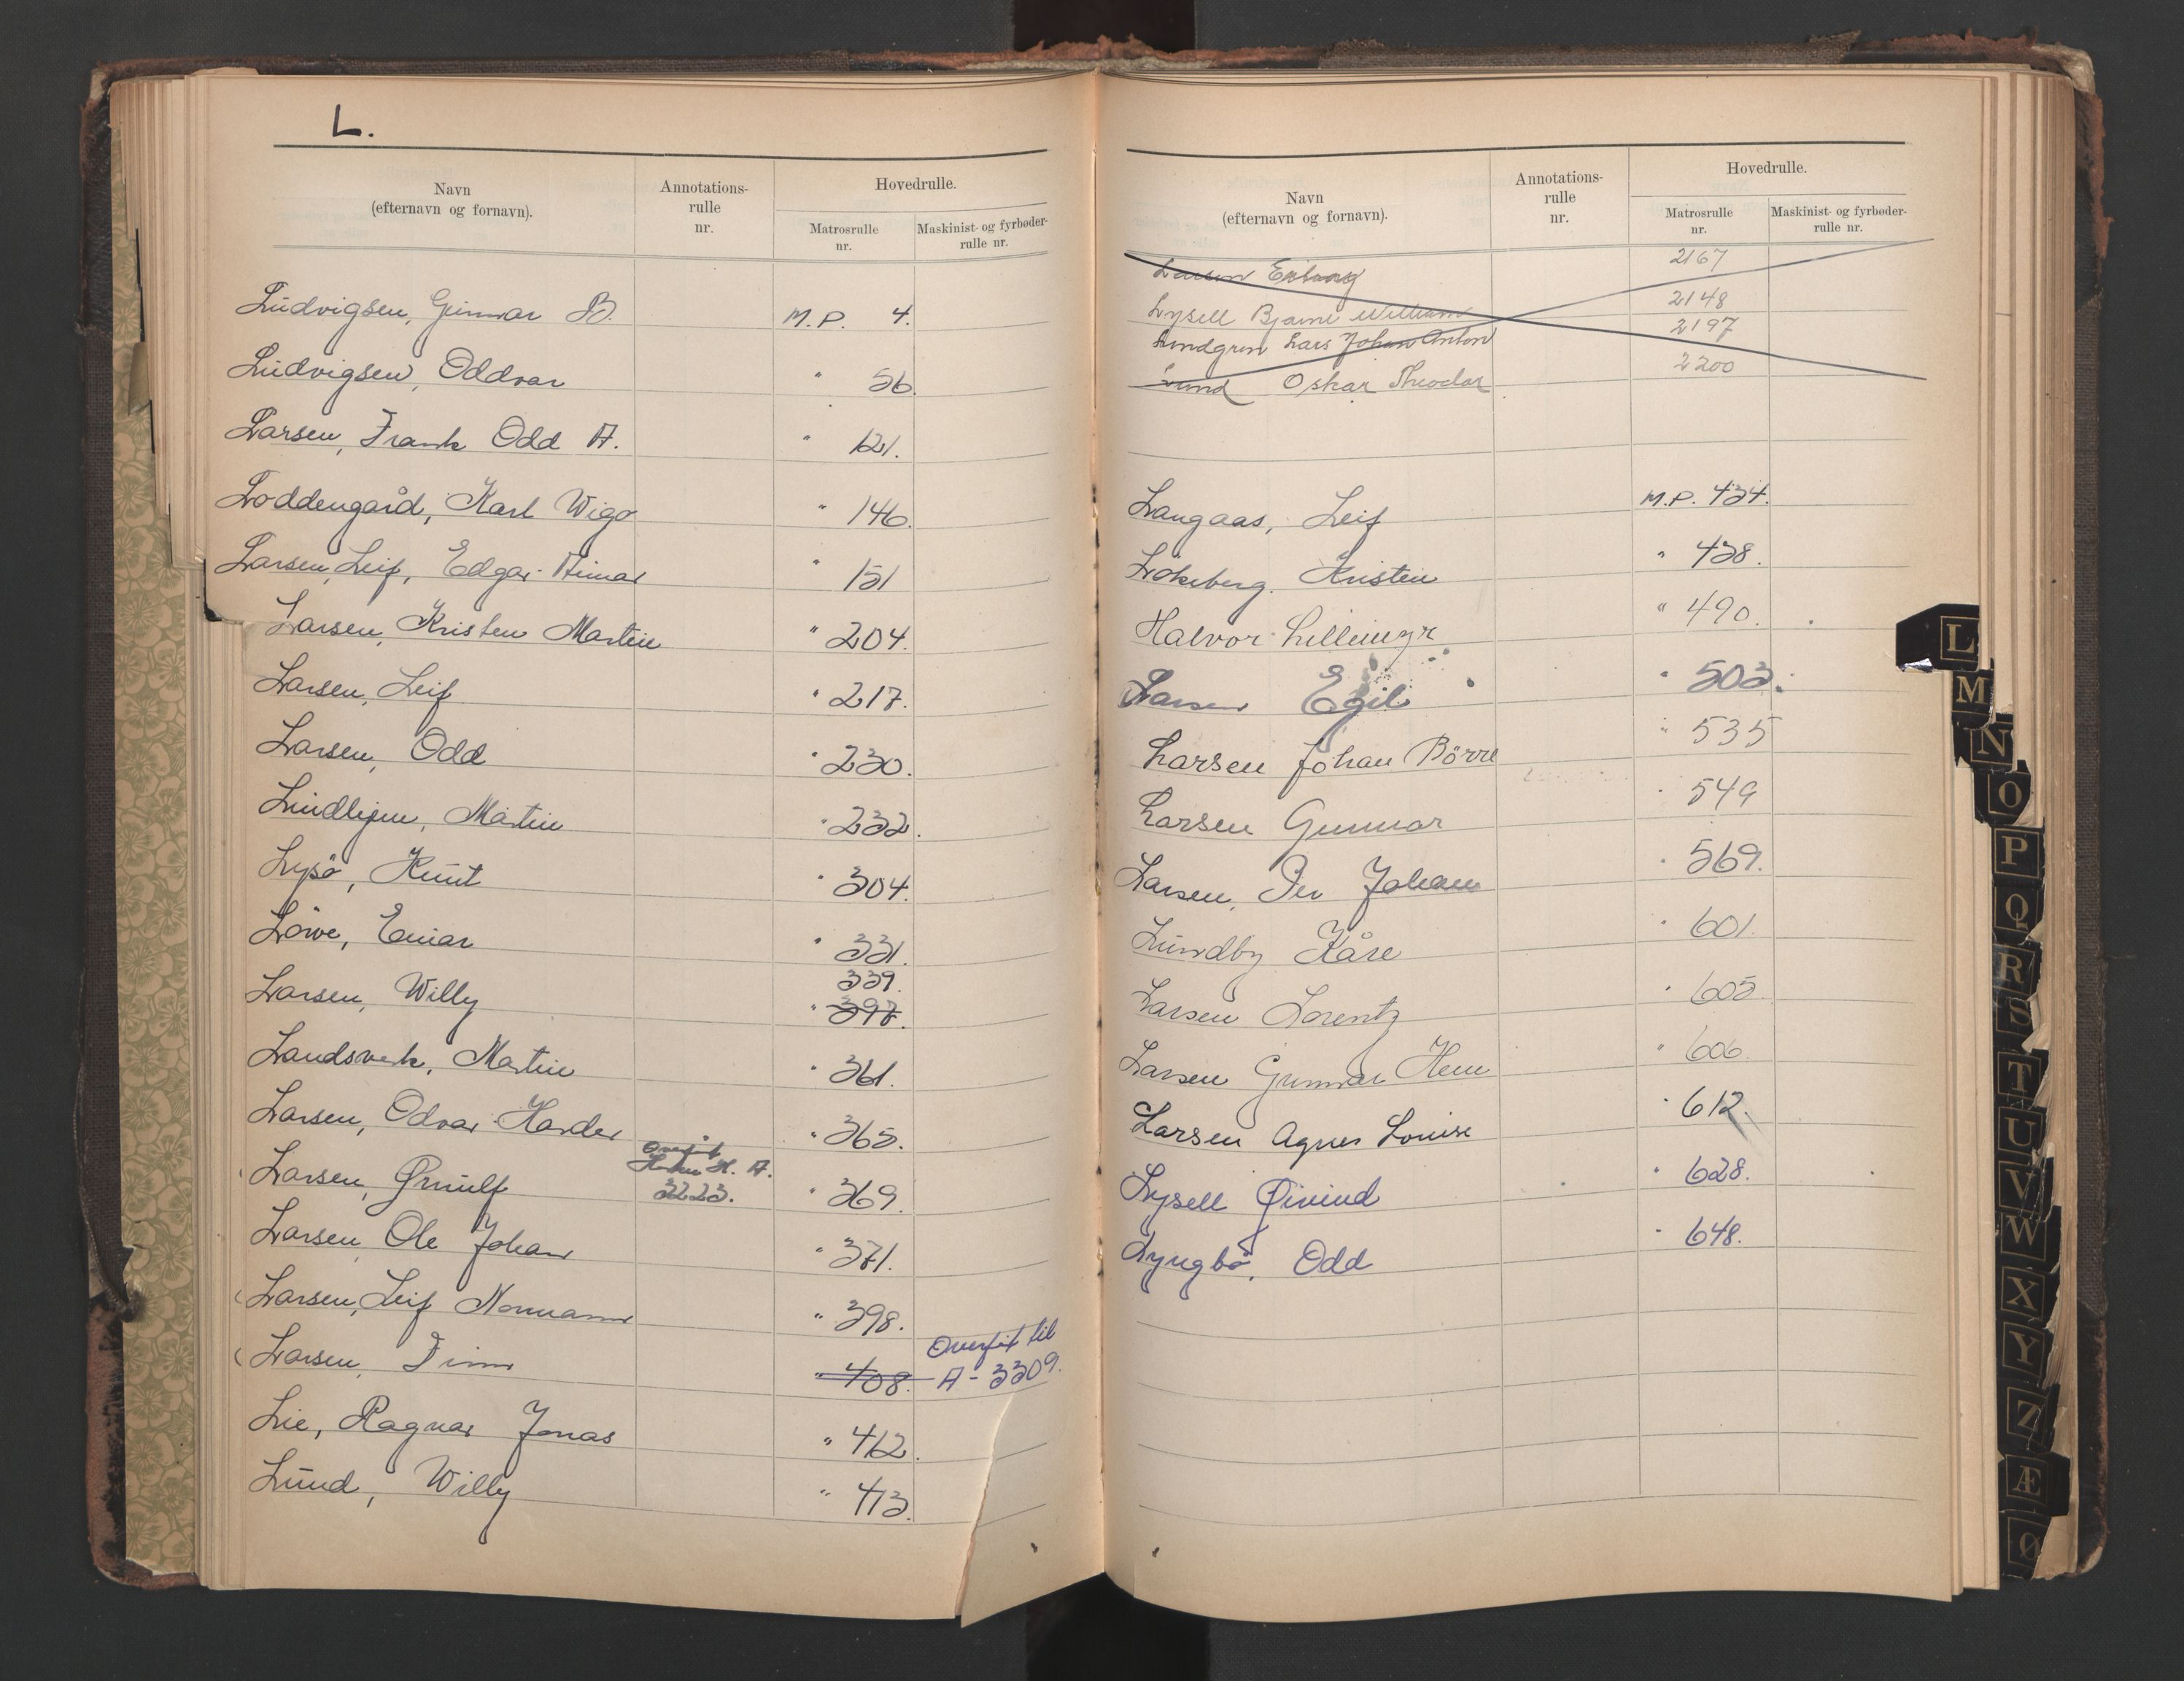 L.
Navn
(efternavn og fornavn).
Annotations-
rulle
nr.
Hovedrulle.
Matrosrulle
nr.
Maskinist- og fyrbøder-
rulle nr.
Ludvigsen, Gunnar B. M.P. 4.
Ludvigsen, Oddvar " 56.
Larsen, Frank Odd A. " 121.
Loddengaard, Karl Wigo " 146.
Larsen, Leif, Edgar Aimar " 151
Larsen, Kristen Martin " 204.
Larsen, Leif " 217.
Larsen, Odd " 230.
Lindligen, Martin " 232.
Lysö, Knut " 304.
Löwe, Einar " 331.
339.
Larsen, Willy " 397.
Landsverk, Martin " 361.
Larsen, Odvar Harder " 365.
Overført
H. A.
Larsen, Ørnulf 3223. " 369.
Larsen, Ole Johan " 371.
Larsen, Leif Normann " 398.
Overført til
Larsen, Finn " 408. A- 3309.
Lie, Ragnar Jonas " 412.
Lund, Willy " 413.
Navn
(efternavn og fornavn).
Annotations-
rulle
nr.
Hovedrulle.
Matrosrulle
nr.
Maskinist- og fyrbøder-
rulle nr.
Larsen 2167
Lysell Bjarne William 2148
Lindgren Lars Johan Anton 2197
Lund Oskar Theodor 2200
Langaas, Leif M.P. 434.
Lökeberg. Kristen " 438.
Halvor Lillemyr " 490.
Larsen Egil " 503.
Larsen Johan Börre " 535
Larsen Gunnar " 549
Larsen, Per Johan " 569.
Lundby Kåre " 601.
Larsen Lorentz " 605.
Larsen Gunnar Hem " 606.
Larsen Agnes Louise " 612.
Lysell Øivind " 628.
Lyngbö, Odd " 648.
L
M
N
O
P
Q
R
S
T
U
V
W
X
Y
Z
Æ
Ø